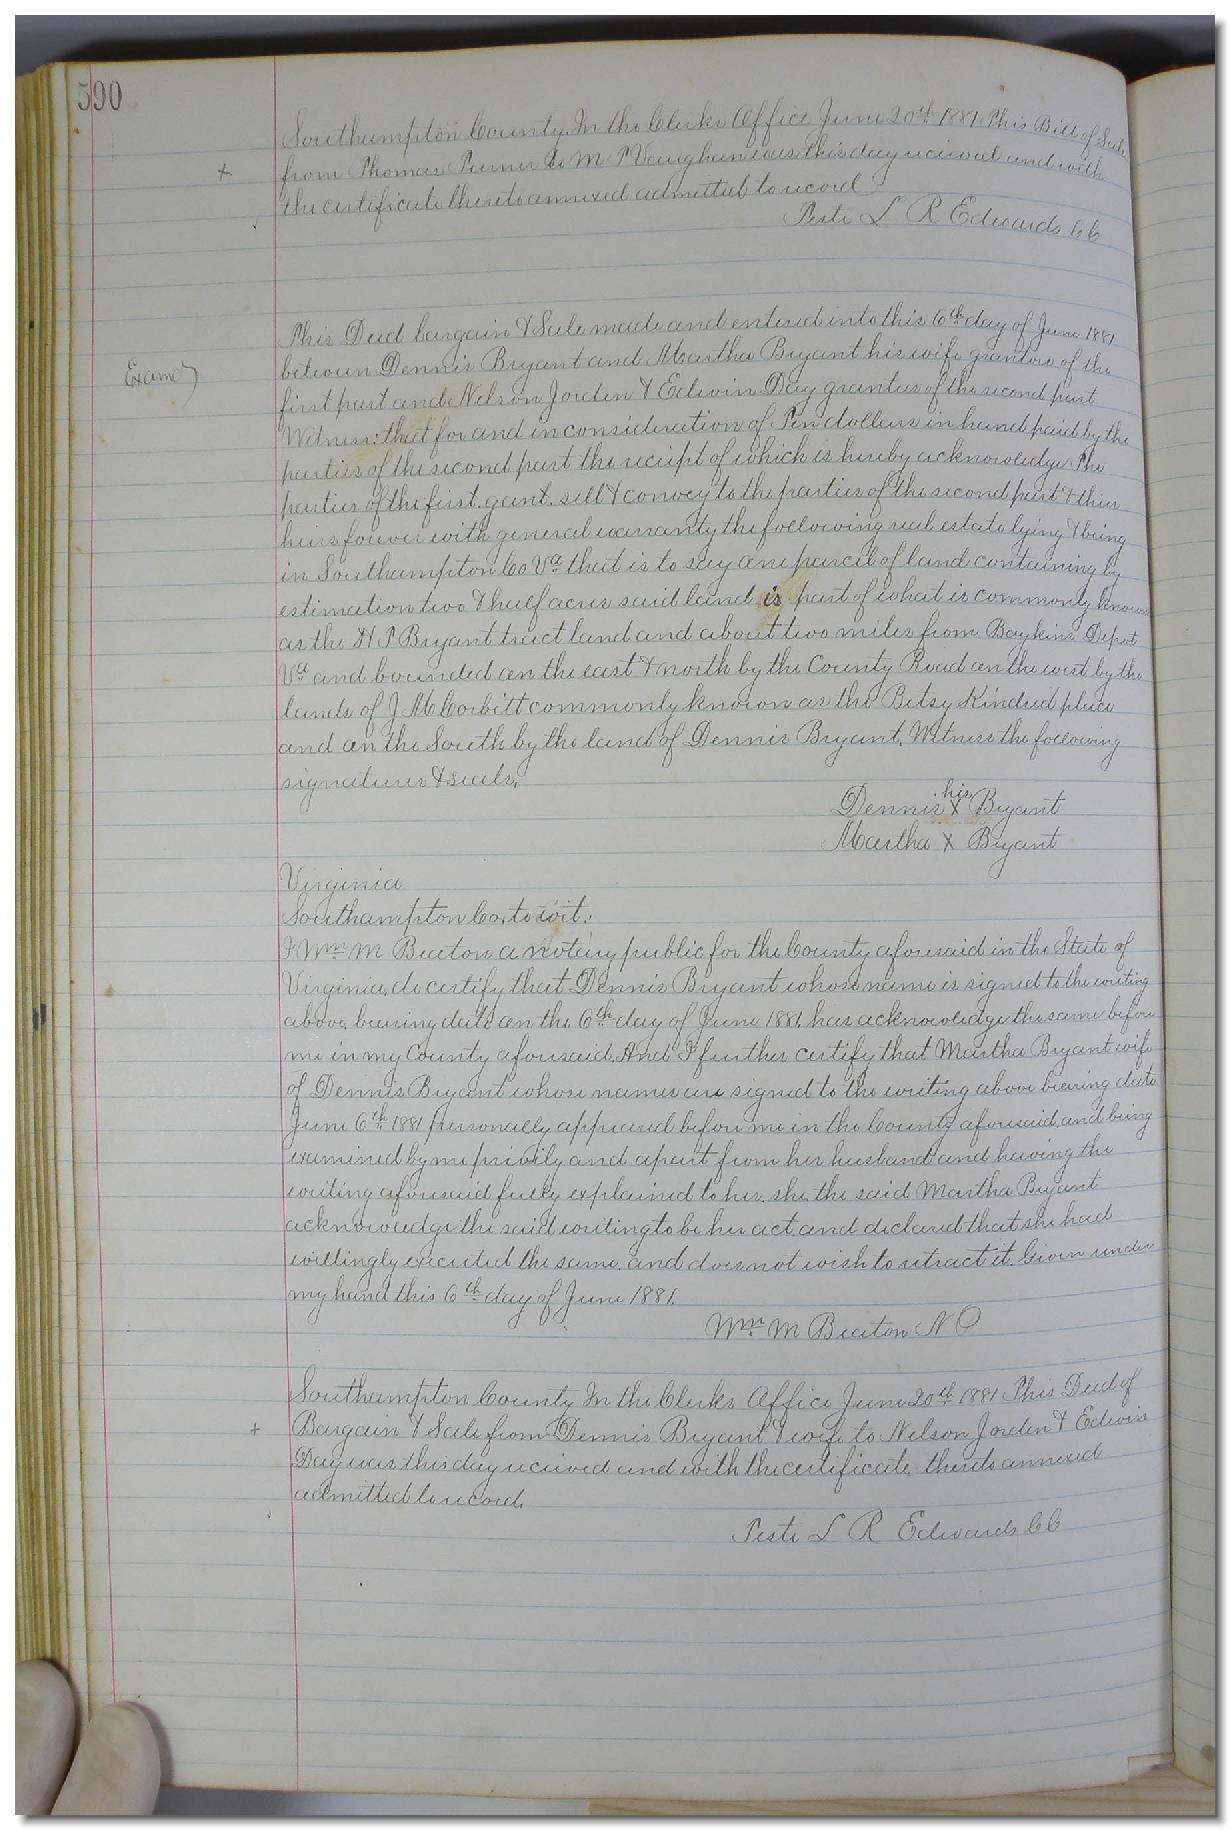 590
Southampton County In the Clerks Office June 20th 1881 This Bill of Sale
from Thomas Turner to M T Vaughan was this day received and with
the certificate thereto annexed admitted to record
Teste L R Edwards CC
This Deed bargain & Sale made and entered into this 6th day of June 1881
Examd
between Dennis Bryant and Martha Bryant his wife grantors of the
first part and Nelson Jorden & Edwin Day grantees of the second part
Witness: that for and in consideration of Ten dollars in hand paid by the
parties of the second part the receipt of which is hereby acknowledge The
parties of the first, gant, sell & convey to the parties of the second part & their
heirs forever with general warranty the following real estate lying & being
in Southampton Co Va that is to say one parcel of land containing by
estimation two & half acres said land is part of what is commonly known
as the H P Bryant tract land and about two miles from Boykins Depot
Va and bounded on the east & north by the County Road on the west by the
lands of J M Corbitt commonly known as the Betsy Kindred place
and on the South by the land of Dennis Bryant. Witness the following
signatures & seals.
his
Dennis X Bryant
Martha X Bryant
Virginia
Southampton Co, to wit:
I Wm M Beaton a notary public for the County aforesaid in the State of
Virginia, do certify that Dennis Bryant whose name is signed to the writing
above, bearing date on the 6th day of June 1881 has acknowledge the same before
me in my County aforesaid. And I further certify that Martha Bryant wife
of Dennis Bryant whose names are signed to the writing above bearing date
June 6th 1881 personally appeared before me in the County aforesaid, and being
examined by me privily and apart from her husband and having the
writing aforesaid fully explained to her, she the said Martha Bryant
acknowledge the said writing to be her act, and declared that she had
willingly executed the same, and does not wish to retract it. Given under
my hand this 6th day of June 1881.
Wm M Beaton N P
Southampton County In the Clerks Office June 20th 1881 This Deed of
Bargain & Sale from Dennis Bryant & wife to Nelson Jorden & Edwin
Day was this day received and with the certificate thereto annexed
admitted to record.
Teste L R Edwards CC